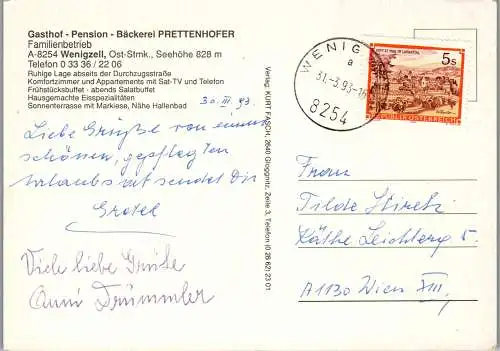 Gasthof - Pension - Bäckerei PRETTENHOFER
Familienbetrieb
A-8254 Wenigzell, Ost-Stmk., Seehöhe 828 m
Telefon 0 33 36 / 22 06
Ruhige Lage abseits der Durchzugsstraße
Komfortzimmer und Appartements mit Sat-TV und Telefon
Frühstücksbuffet · abends Salatbuffet
Hausgemachte Eisspezialitäten
Sonnenterrasse mit Markise, Nähe Hallenbad
30.III.93.
Liebe Grüße von einem
schönen, gepflegten
Urlaubsort sendet Dir
Gretel
Viele liebe Grüße
Anni Drummler
Verlag: KURT FASCH, 2640 Gloggnitz, Zeile 3, Telefon (0 26 62) 23 01
WENIG
a
31.-3.93-16
8254
5s
REPUBLIK ÖSTERREICH
Frau
Tilde
Käthe Leichterg 5.
A1130 Wien XIII.